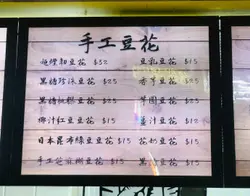 手工豆花
豆花 $32
豆乳豆花 $15
黑糖珍珠豆花 $25
香芋豆花 $25
黑糖粉粿豆花 $25
芋圓豆花 $25
椰汁紅豆豆花 $15
薑汁豆花 $12
日本昆布綠豆豆花 $15
花奶豆花 $15
手工芝麻糊豆花 $15
黑 豆花 $15